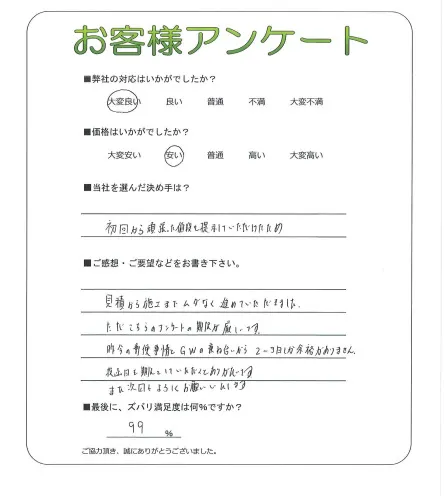 お客様アンケート
■弊社の対応はいかがでしたか?
大変良い 良い 普通 不満 大変不満
■価格はいかがでしたか?
大変安い 安い 普通 高い 大変高い
■当社を選んだ決め手は?
初回から頑張った値段を提示していただけたため
■ご感想・ご要望などをお書き下さい。
見積から施工までムダなく進めていただきました。
ただこちらのアンケートの期限が厳しいです。
昨今の郵便事情とGWの兼ね合いから2〜3日しか余裕がありません。
投函日を期限としていただくとありがたいです
また次回もよろしくお願いいたします
■最後に、ズバリ満足度は何%ですか?
99 %
ご協力頂き、誠にありがとうございました。